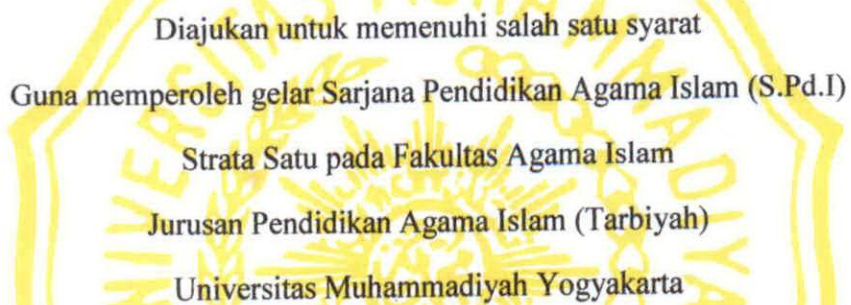 Diajukan untuk memenuhi salah satu syarat
Guna memperoleh gelar Sarjana Pendidikan Agama Islam (S.Pd.I)
Strata Satu pada Fakultas Agama Islam
Jurusan Pendidikan Agama Islam (Tarbiyah)
Universitas Muhammadiyah Yogyakarta